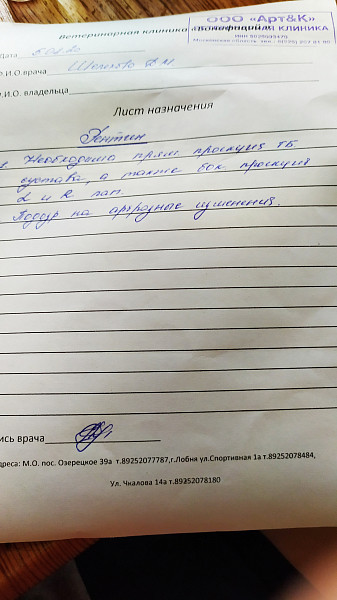 Ветеринарная клиника
ООО «Арт&К»
ВЕТЕРИНАРНАЯ КЛИНИКА
Дата
Ф.И.О врача
Ф.И.О. владельца
Лист назначения
Рентген
1. Необходима прям проекция ТБ
сустава, а также бок проекция
L и R лап.
Подозр на артрозные изменения.
ись врача
дреса: М.О. пос. Озерецкое 39а т.89252077787,г.Лобня ул.Спортивная 1а т.89252078484,
Ул. Чкалова 14а т.89252078180